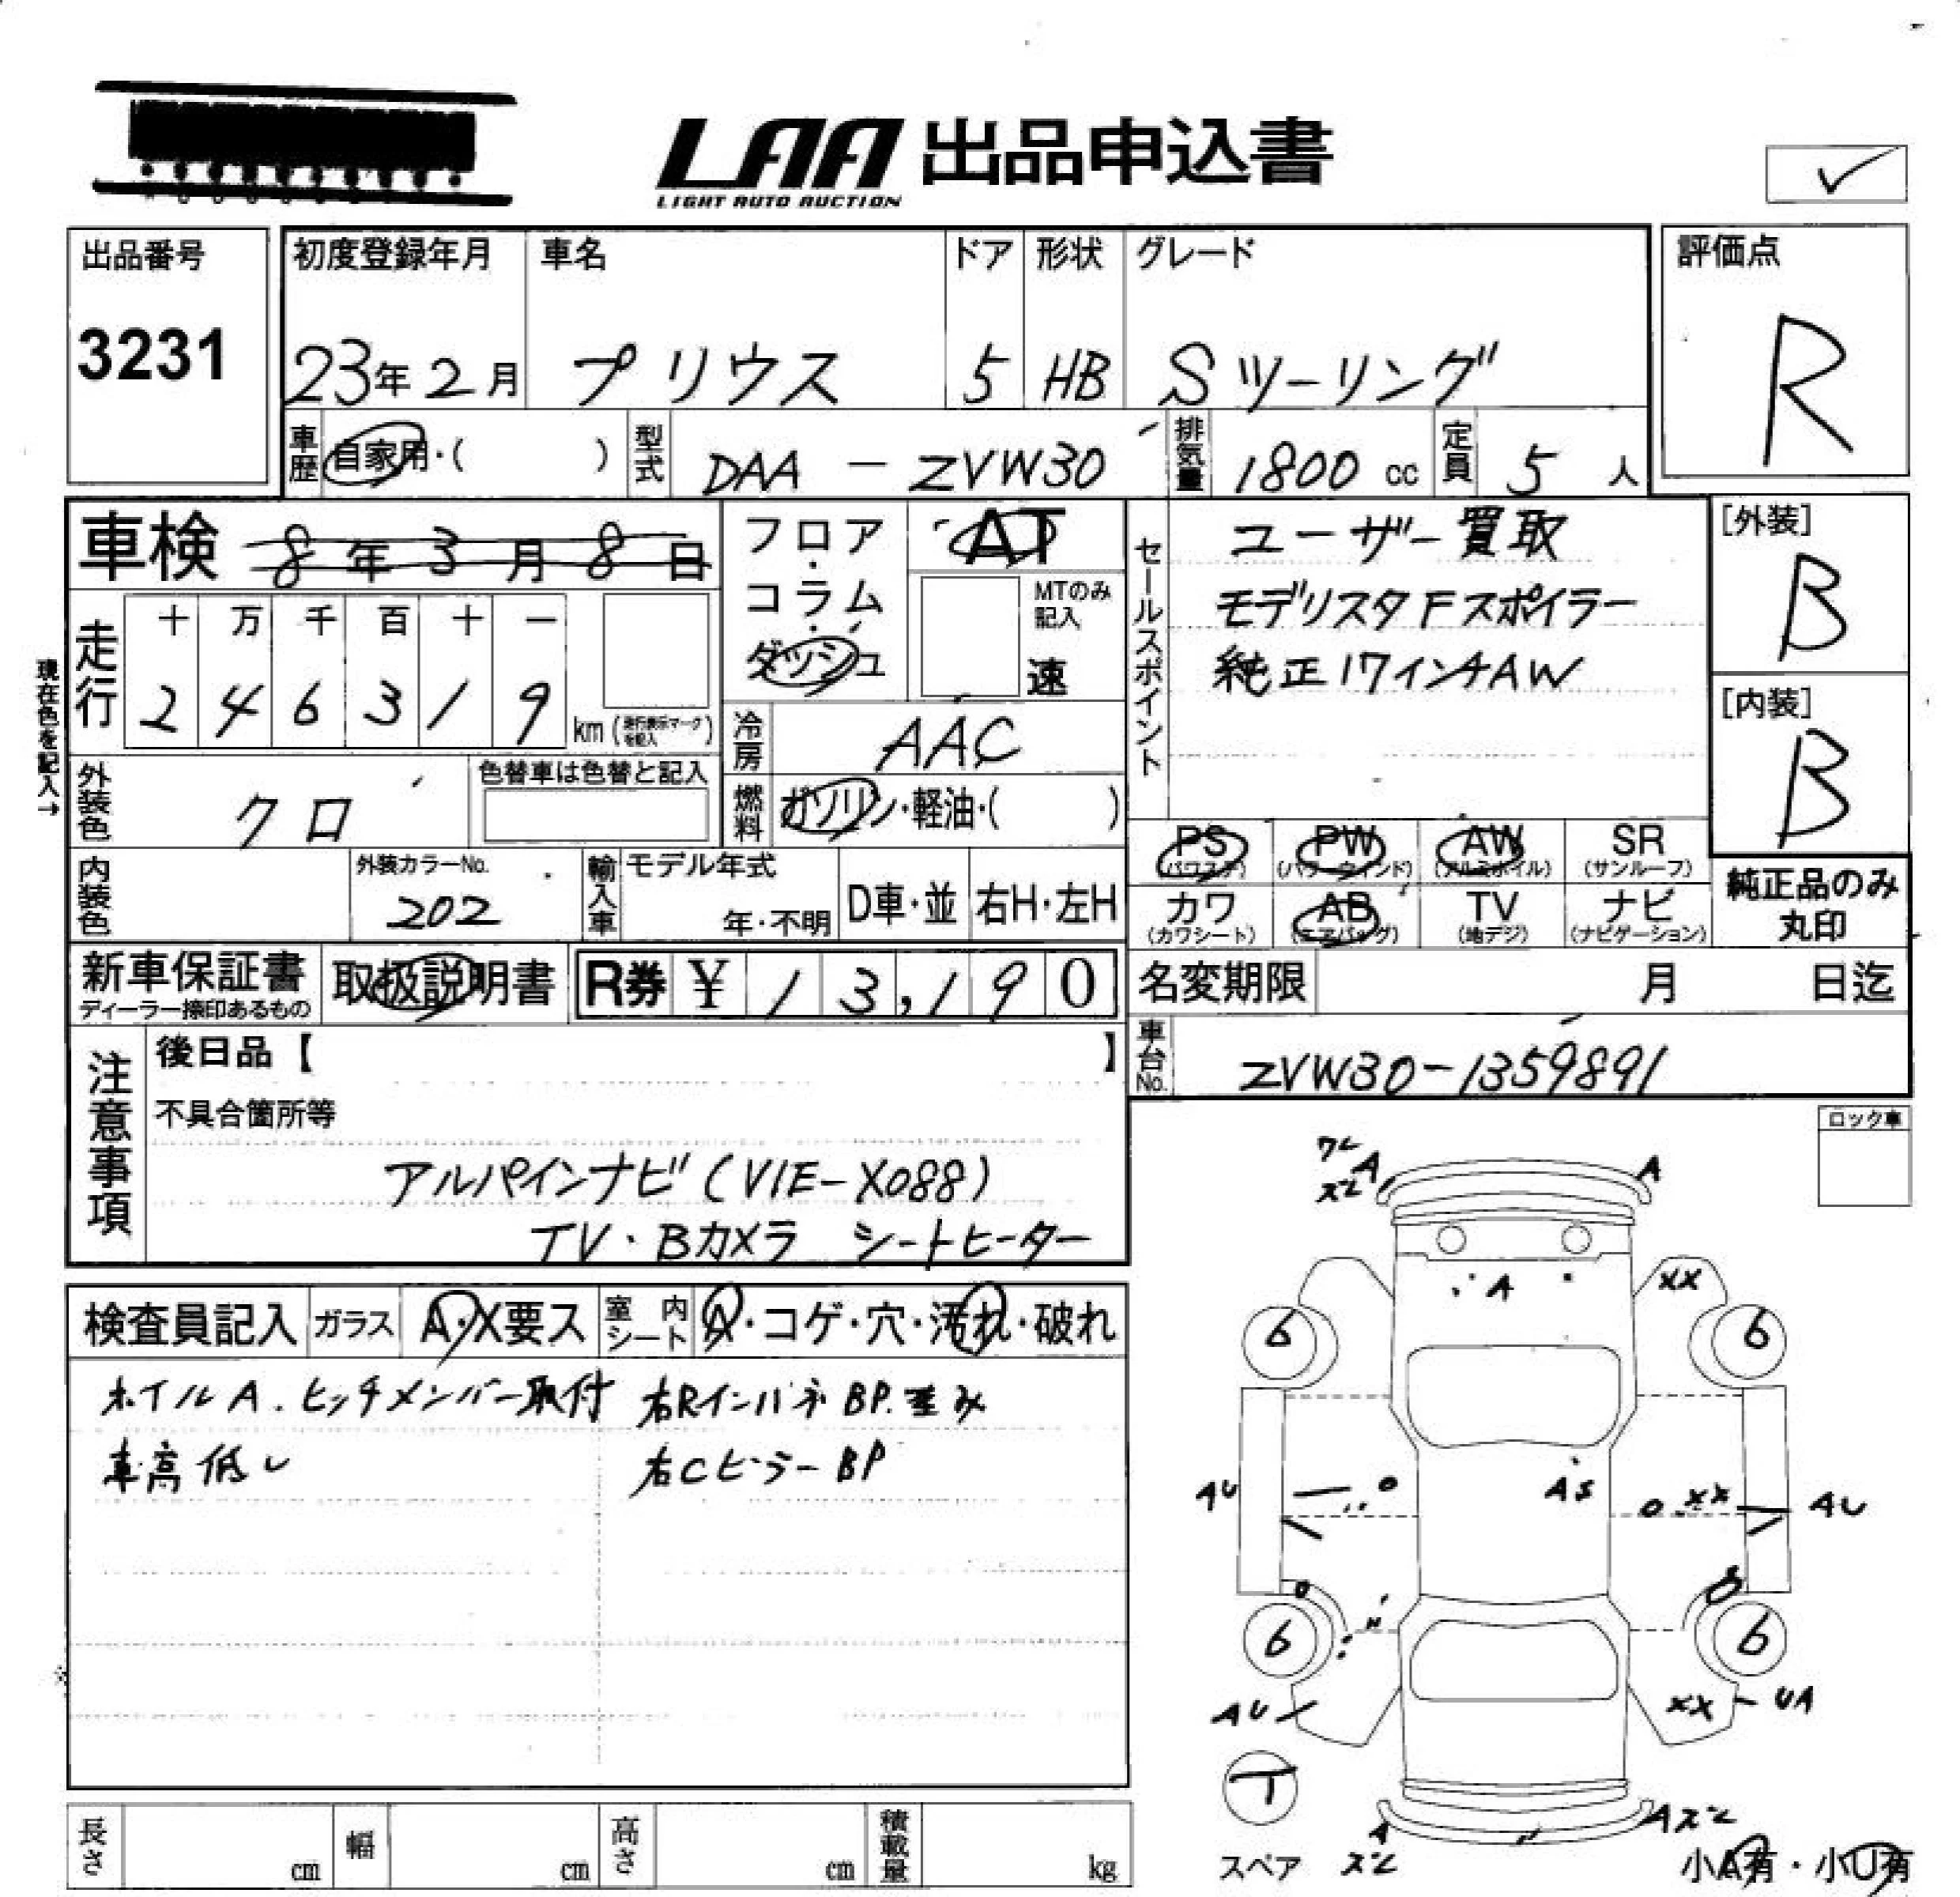 LAA 出品申込書
LIGHT AUTO AUCTION
出品番号
3231
初度登録年月
23年2月
車名
プリウス
ドア
5
形状
HB
グレード
Sツーリング
評価点
R
車歴 自家用・( )
型式 DAA - ZVW30
排気量 1800 cc
定員 5 人
車検 8年3月8日
フロア・コラム・ダッシュ
AT
MTのみ記入
速
セールスポイント
ユーザー買取
モデリスタFスポイラー
純正17インチAW
[外装]
B
[内装]
B
現在色を記入→
走行
十 万 千 百 十 一
2 4 6 3 1 9 km (走行表示マークを記入)
冷房 AAC
外装色 クロ
色替車は色替と記入
燃料 ガソリン・軽油・( )
PS (パワステ)
PW (パワーウィンド)
AW (アルミホイル)
SR (サンルーフ)
カワ (カワシート)
AB (エアバッグ)
TV (地デジ)
ナビ (ナビゲーション)
純正品のみ丸印
内装色
外装カラーNo.
202
輸入車
モデル年式
年・不明
D車・並
右H・左H
新車保証書
ディーラー捺印あるもの
取扱説明書
R券 ¥ 13,190
名変期限 月 日迄
車台No. ZVW30-1359891
注意事項
後日品【 】
不具合箇所等
アルパインナビ(VIE-X088)
TV・Bカメラ シートヒーター
ロック車
検査員記入
ガラス A・X要ス
室内シート A・コゲ・穴・汚れ・破れ
ホイルA. ヒッチメンバー取付
車高低し
右Rインパネ BP. 歪み
右Cピラー BP
ワレ
スレ
A
A
A
XX
6
6
AU
AS
XX
AU
6
6
AU
XX
UA
T
スペア
A
スレ
Aスレ
小A有・小U有
長さ cm
幅 cm
高さ cm
積載量 kg